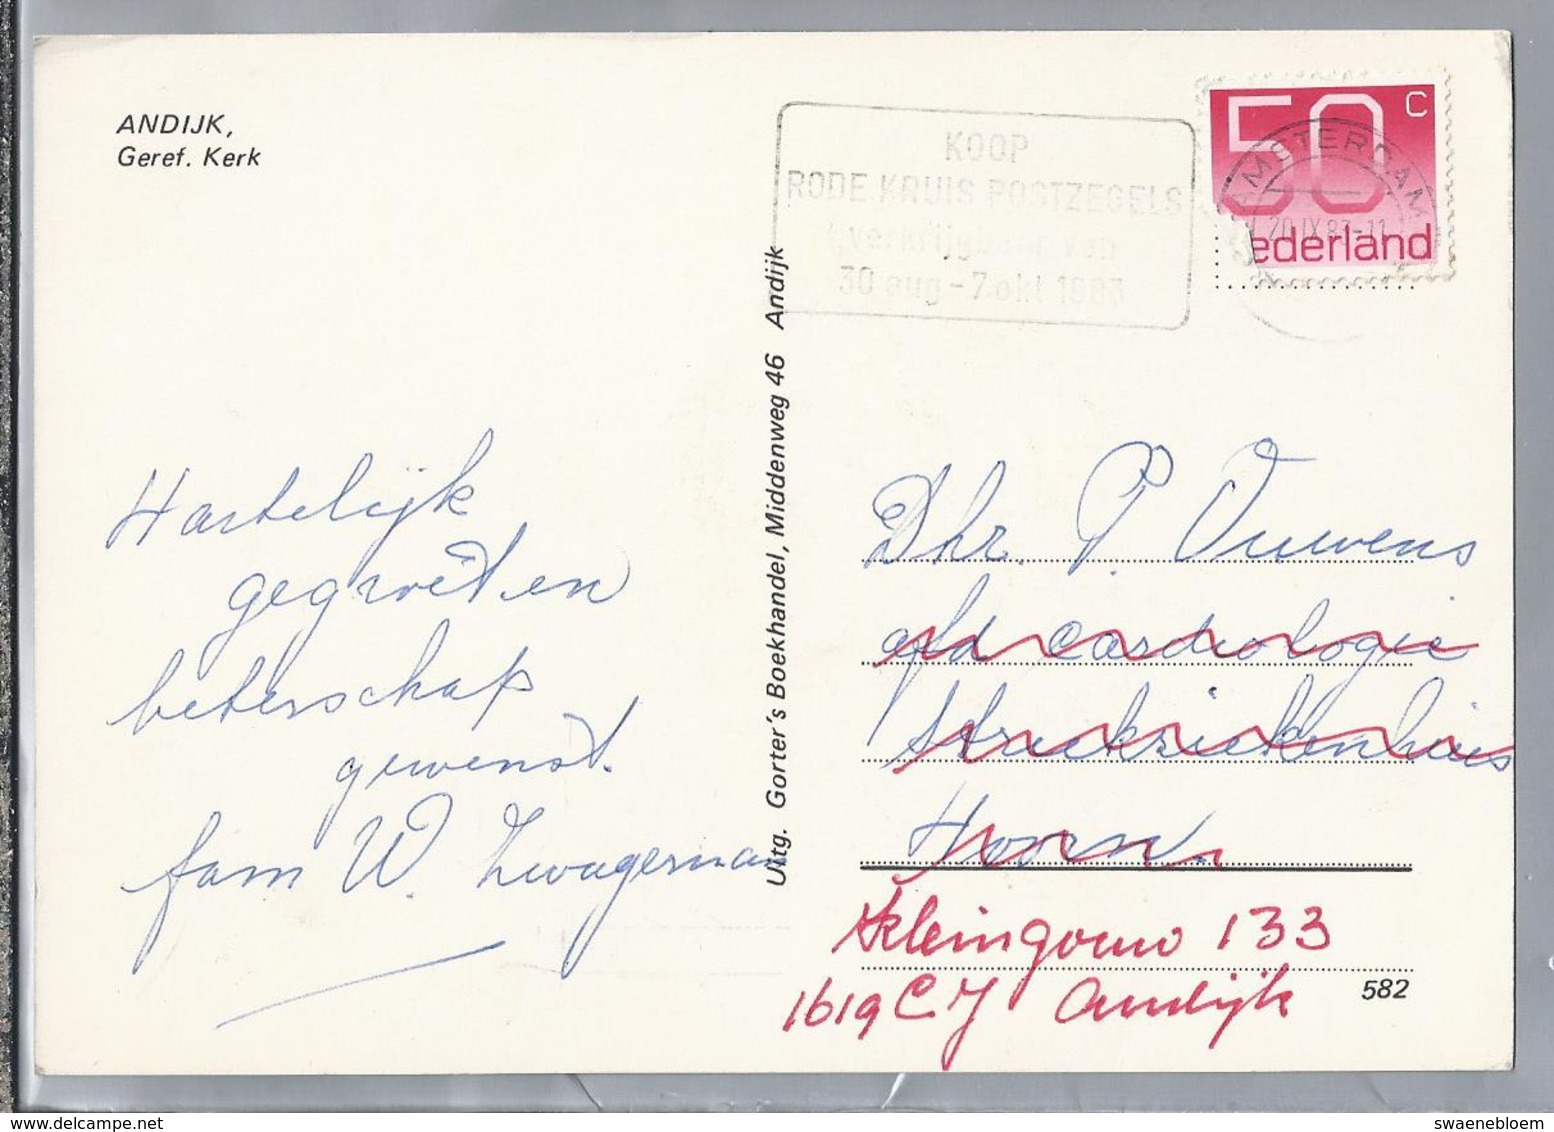 ANDIJK,
Geref. Kerk
KOOP
RODE KRUIS POSTZEGELS
verkrijgbaar van
30 aug - 7 okt 1983
50 c
nederland
AMSTERDAM
20 IX 83-11
Hartelijk
gegroet en
beterschap
gewenst.
fam W. Zwagerman
Uitg. Gorter's Boekhandel, Middenweg 46 Andijk
Dhr. P. Ouwens
afd cardiologie
streekziekenhuis
Hoorn.
Kleingouw 133
1619 CJ Andijk
582
delcampe.net
swaenebloem